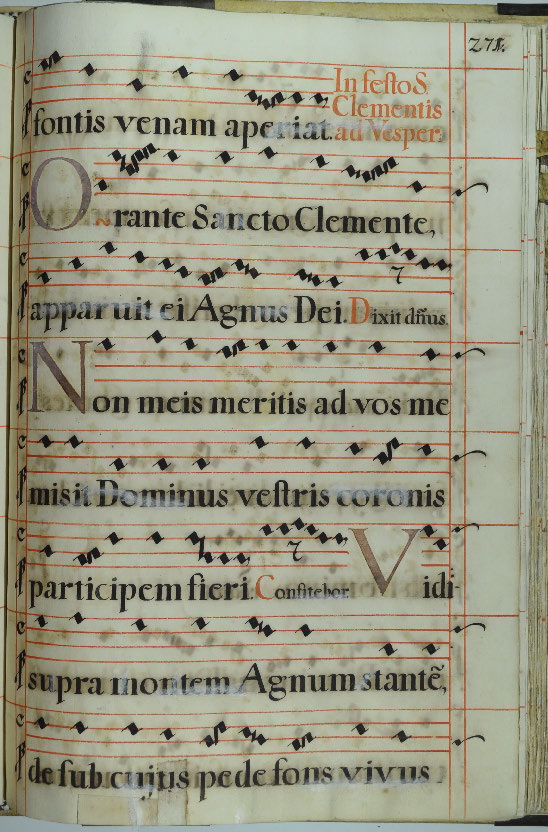 271.
fontis venam aperiat. In festo S.
Clementis
ad Vesper.
Orante Sancto Clemente,
apparuit ei Agnus Dei. Dixit dñus.
7
Non meis meritis ad vos me
misit Dominus vestris coronis
participem fieri. Confitebor. Vidi
7
supra montem Agnum stantẽ,
de sub cujus pede fons vivus